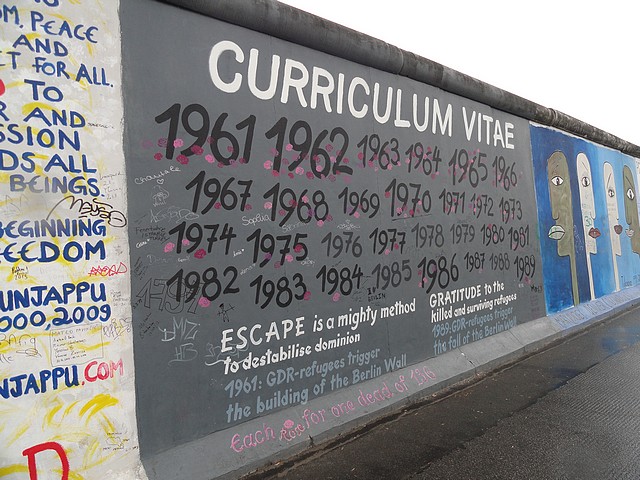 M, PEACE
AND
T FOR ALL.
TO
R AND
SSION
DS ALL
BEINGS
BEGINNING
EEDOM
UNJAPPU
000,2009
NJAPPU.COM
CURRICULUM VITAE
1961 1962 1963 1964 1965 1966
1967 1968 1969 1970 1971 1972 1973
1974 1975 1976 1977 1978 1979 1980 1981
1982 1983 1984 1985 1986 1987 1988 1989
ESCAPE is a mighty method
to destabilise dominion
1961: GDR-refugees trigger
the building of the Berlin Wall
GRATITUDE to the
killed and surviving refugees
1989: GDR-refugees trigger
the fall of the Berlin wall
Each for one dead of 136
DMZ